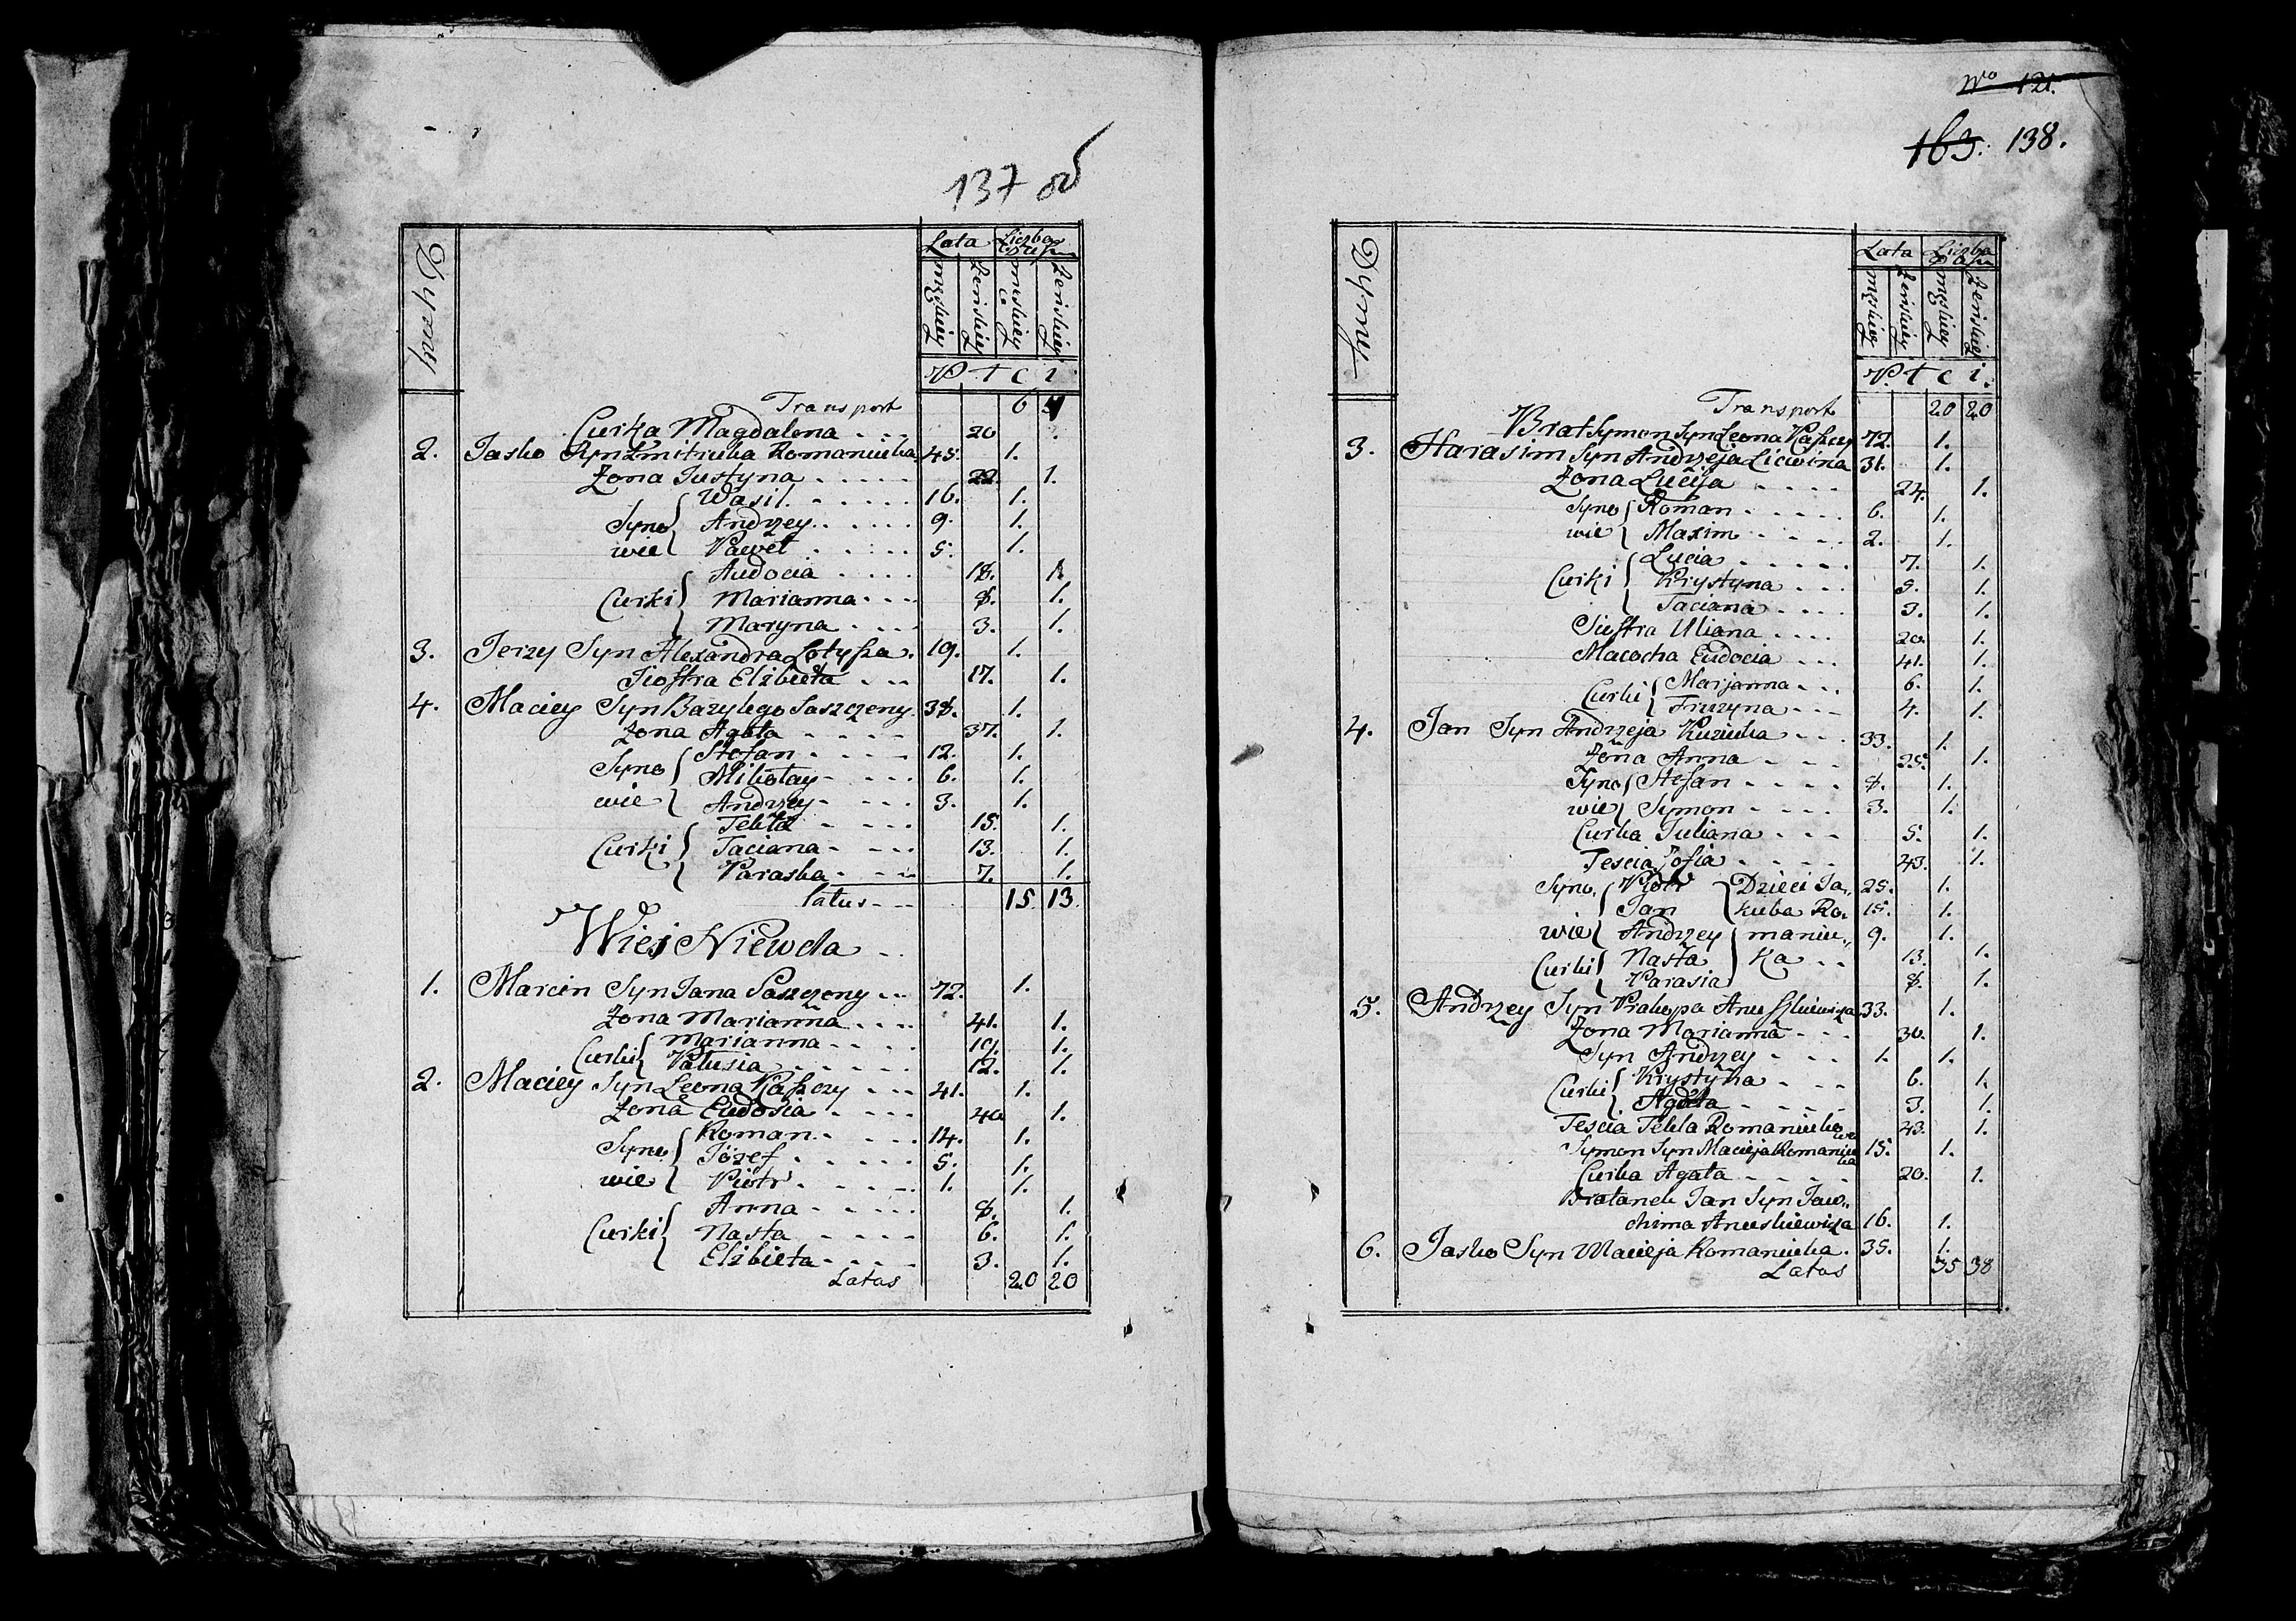 137 об
Dymy
Lata Liczba Dusz
męskiey żeńskiey męskiey żeńskiey
P ł c i
Transport 6 4
Curka Magdalena - - 20
2. Jasko Syn Zmitruka Romaniuka 45. 1.
Żona Justyna - - - - 22. 1.
Syno wie { Wasil - - - - 16. 1.
Andrzey - - - - 9. 1.
Paweł - - - - 5. 1.
Curki { Audocia - - - - 18. 1.
Marianna - - - 8. 1.
Maryna - - - 3. 1.
3. Jerzy Syn Alexandra Łotysza. 19. 1.
Siostra Elżbieta - - - 17. 1.
4. Maciey Syn Bazylego Saszczeny. 38. 1.
Żona Agata - - - - 37. 1.
Syno wie { Stefan - - - - 12. 1.
Mikołay - - - - 6. 1.
Andrzey - - - - 3. 1.
Curki { Tekla - - - - 15. 1.
Taciana - - - 13. 1.
Paraska - - - 7. 1.
latus - - - 15. 13.
Wieś Niewda - -
1. Marcin Syn Jana Saszczeny - - 72. 1.
Żona Marianna - - - 41. 1.
Curki { Marianna - - - 19. 1.
Patusia - - - - 12. 1.
2. Maciey Syn Leona Kaszczy - - - 41. 1.
Żona Eudosia - - - - 40 1.
Syno wie { Roman - - - - 14. 1.
Józef - - - - - 5. 1.
Piotr - - - - - 1. 1.
Curki { Anna - - - - 8. 1.
Nasta - - - - 6. 1.
Elżbieta - - - - 3. 1.
Latus 20 20
No 121.
163. 138.
Dymy
Lata Liczba Dusz
męskiey żeńskiey męskiey żeńskiey
P ł c i.
Transport 20 20
Brat Symon Syn Leona Kaszczy 72. 1.
3. Harasim Syn Andrzeja Licwina 31. 1.
Żona Łucyja - - - - 24. 1.
Syno wie { Roman - - - - 6. 1.
Maxim - - - - 2. 1.
Curki { Lucia - - - - 7. 1.
Krystyna - - - 5. 1.
Taciana - - - - 3. 1.
Siostra Uliana - - - - 20. 1.
Macocha Eudocia - - - 41. 1.
Curki { Marjanna - - - 6. 1.
Fruzyna - - - 4. 1.
4. Jan Syn Andrzeja Kuziuka - - - 33. 1.
Żona Anna - - - 25. 1.
Syno wie { Stefan - - - - 8. 1.
Symon - - - - 3. 1.
Curka Juliana - - - 5. 1.
Teścia Zofia - - - - 43. 1.
Syno wie { Piotr } Dzieci Ja,, 25. 1.
Jan kuba Ro, 15. 1.
Andrzey maniu,, 9. 1.
Curki { Nasta ka - - 13. 1.
Parasia 8. 1.
5. Andrzey Syn Prakopa Anuszkiewicza 33. 1.
Żona Marianna - - - 30. 1.
Syn Andrzey - - - 1. 1.
Curki { Krystyna - - - 6. 1.
Agata - - - - 3. 1.
Teścia Tekla Romaniukowa 43. 1.
Symon Syn Macieja Romaniuka 15. 1.
Curka Agata - - - - 20. 1.
Bratanek Jan Syn Jaw,,
chima Anuskiewicza 16. 1.
6. Jasko Syn Macieja Romaniuka. 35. 1.
Latus 35 38